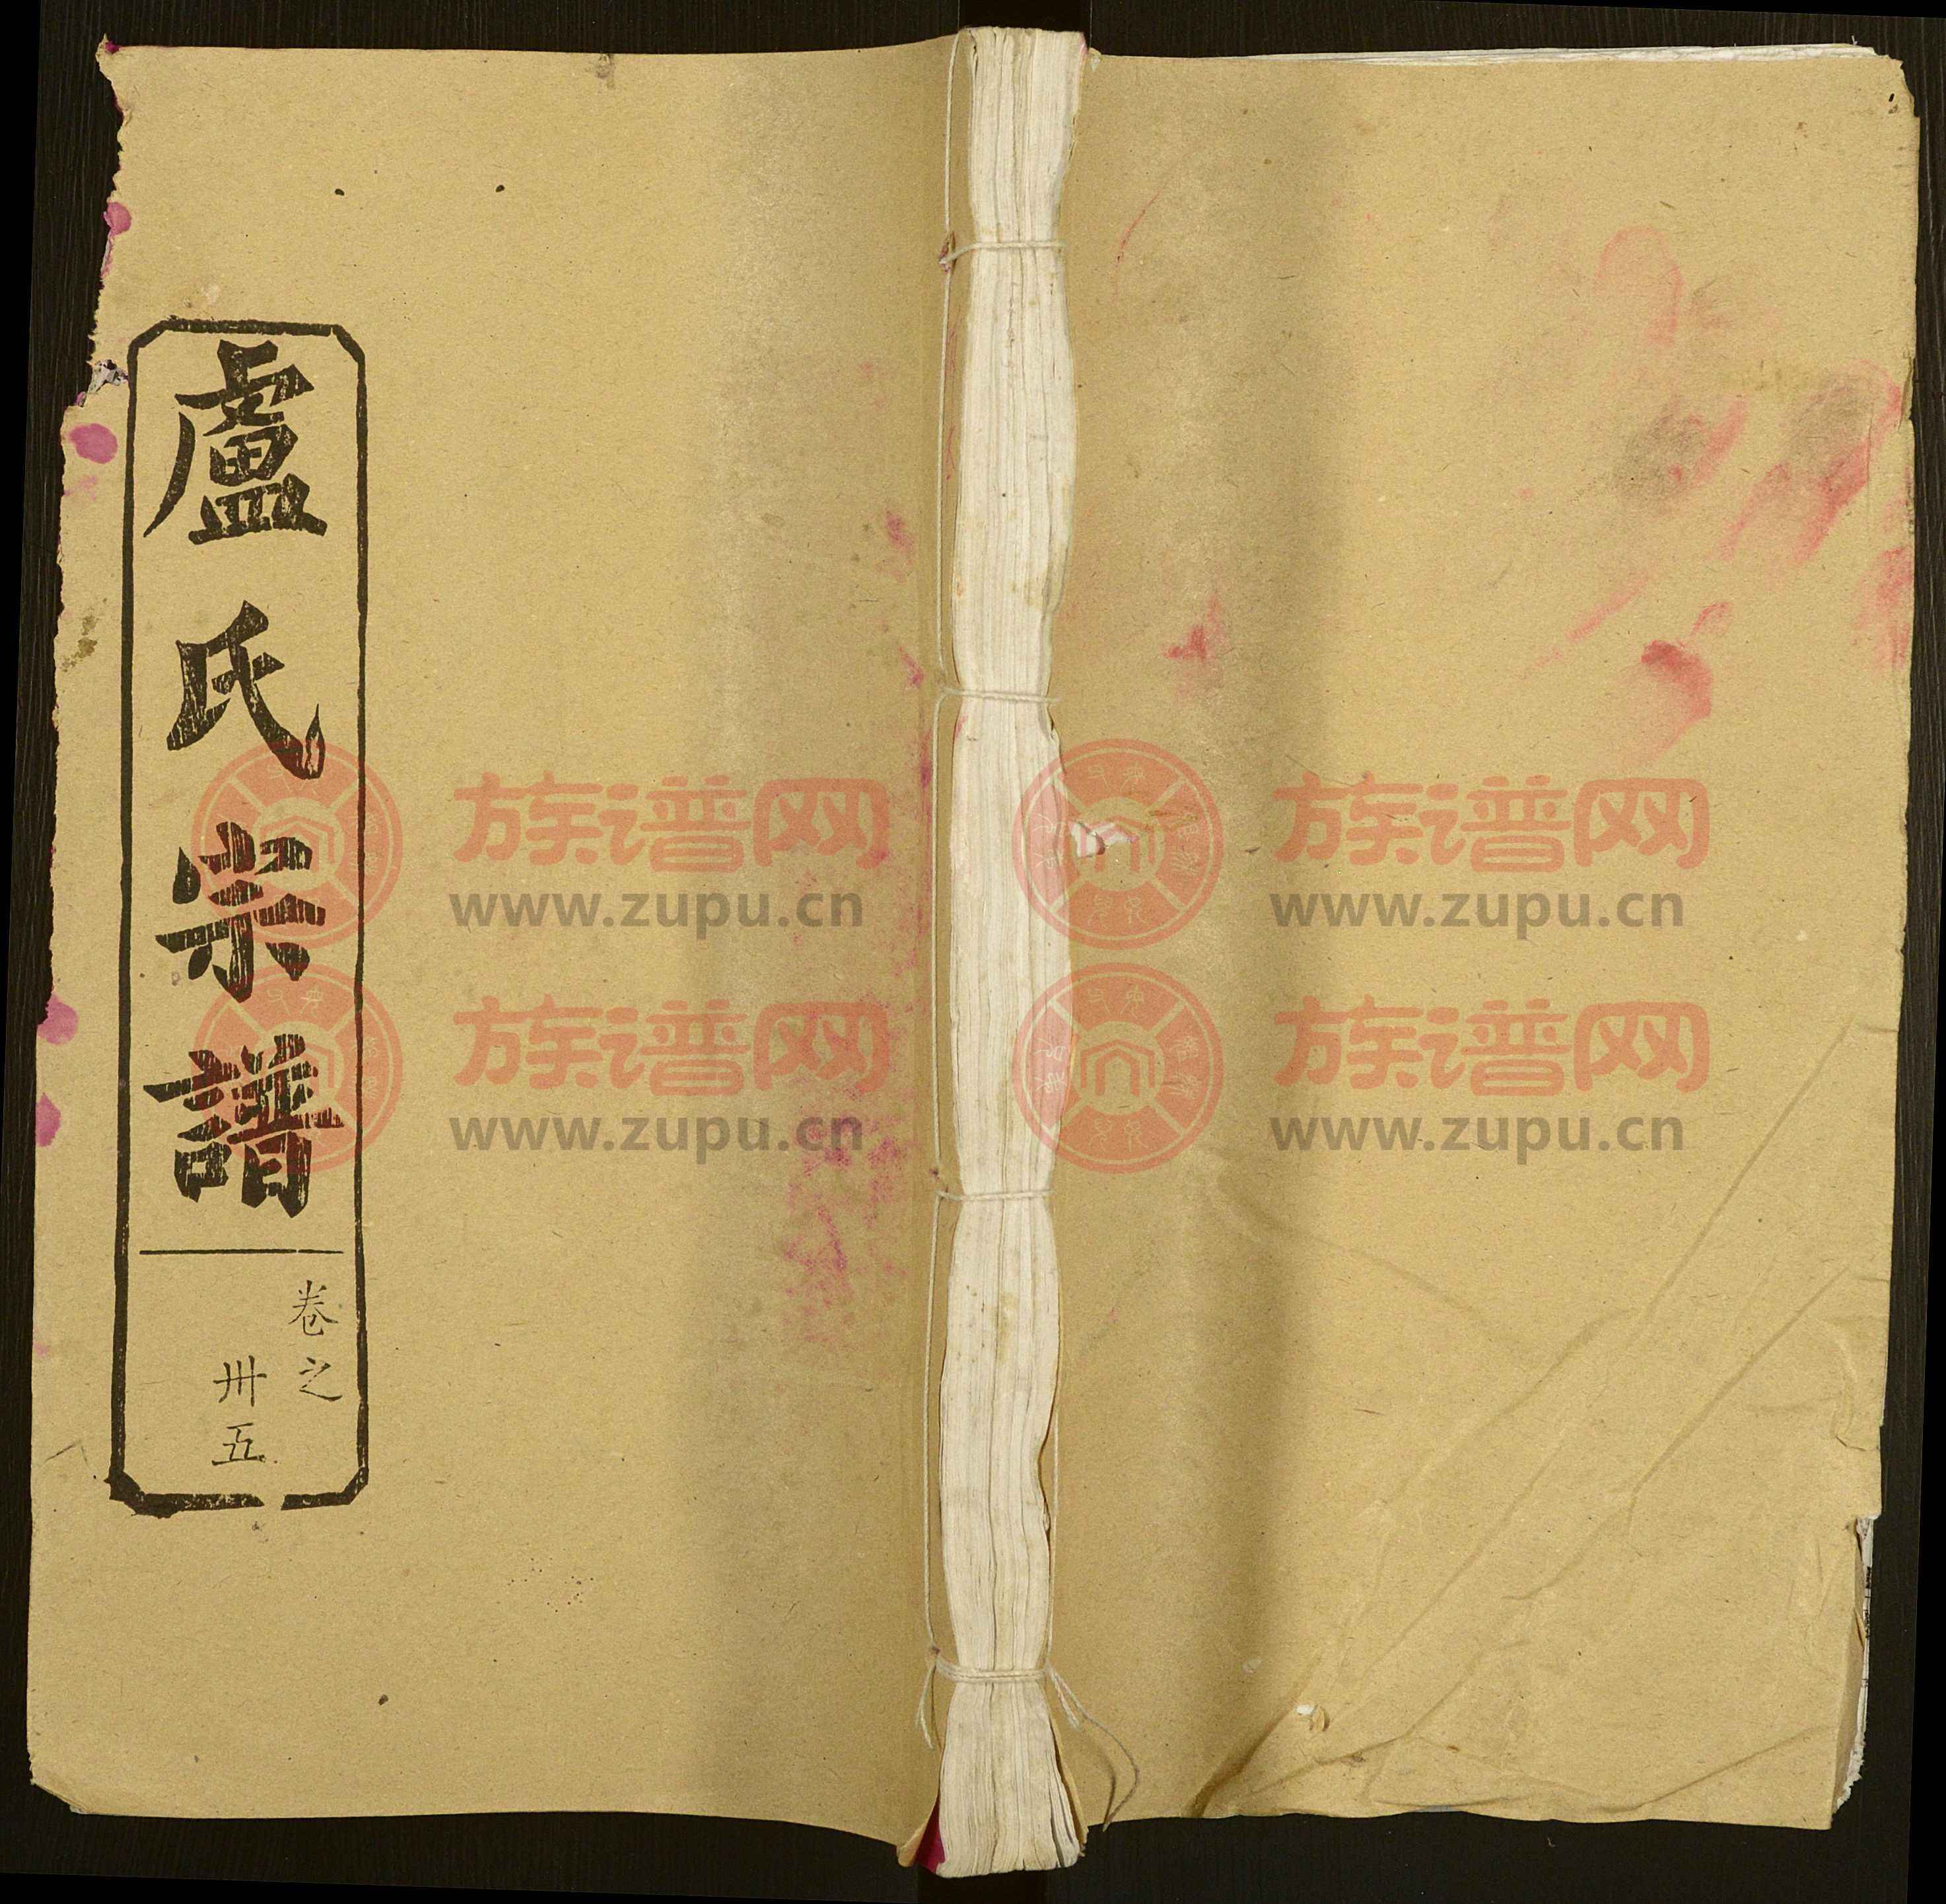 盧氏宗譜
卷之
卅五
族谱网
www.zupu.cn
族谱网
www.zupu.cn
族谱网
www.zupu.cn
族谱网
www.zupu.cn